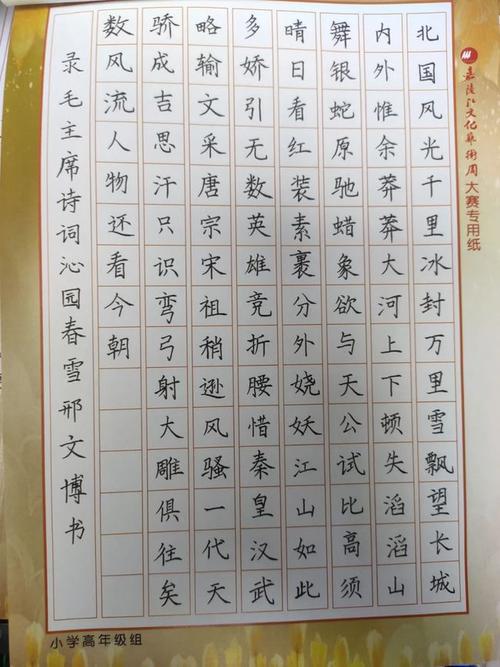 嘉陵江文化藝術周大赛专用纸
北国风光千里冰封万里雪飘望长城
内外惟余莽莽大河上下顿失滔滔山
舞银蛇原驰蜡象欲与天公试比高须
晴日看红装素裹分外娆妖江山如此
多娇引无数英雄竞折腰惜秦皇汉武
略输文采唐宗宋祖稍逊风骚一代天
骄成吉思汗只识弯弓射大雕俱往矣
数风流人物还看今朝
录毛主席诗词沁园春雪邢文博书
小学高年级组